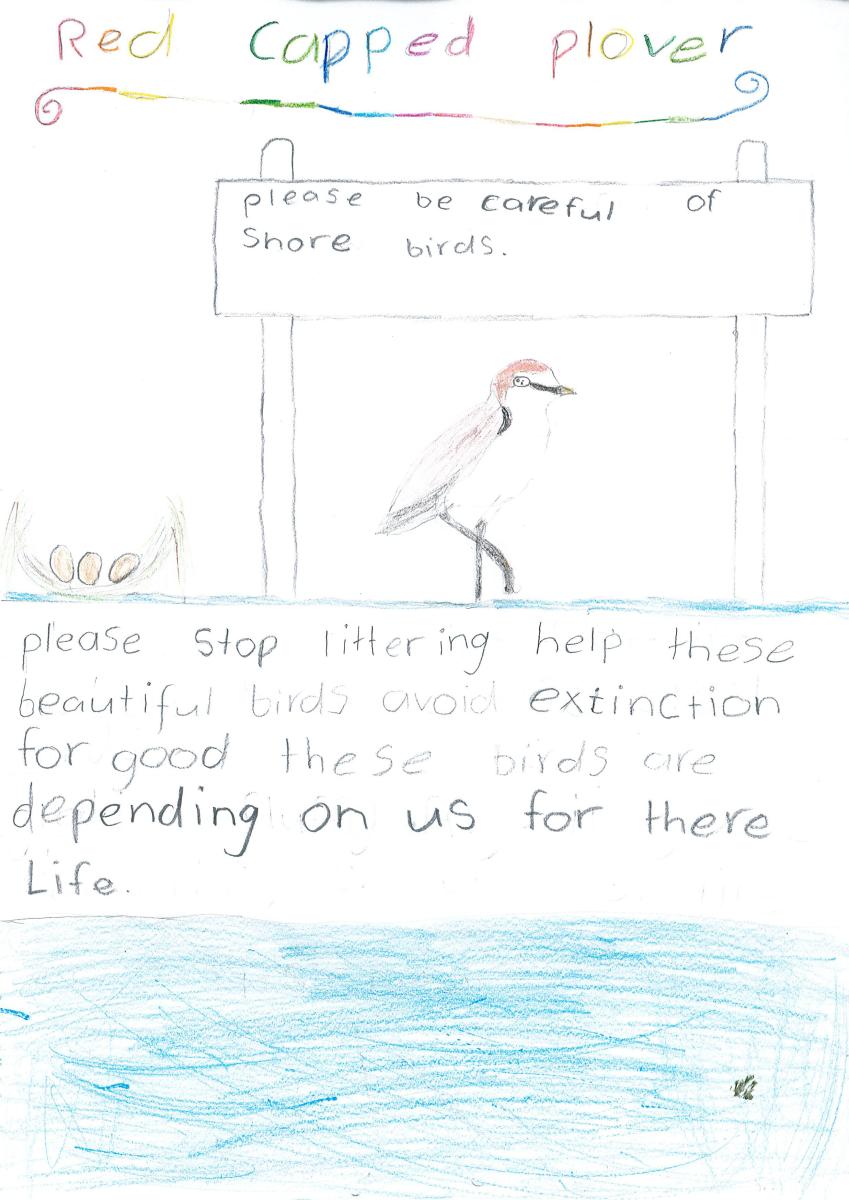 Red Capped plover
please be careful of
Shore birds.
please stop littering help these
beautiful birds avoid extinction
for good these birds are
depending on us for there
Life.